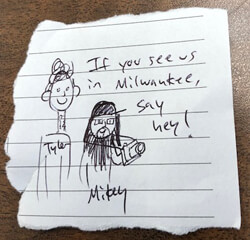 If you see us
in Milwaukee,
say
hey!
Tyler
Mikey